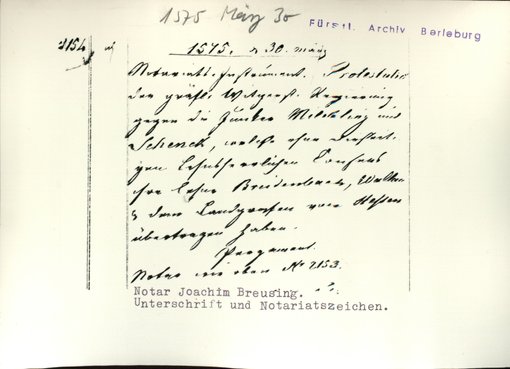 1575 März 30
Fürstl. Archiv Berleburg
2154
1575. d 30. März
Notariats-Instrument. Protestation
der gräfl. Wittgenst. Regierung
gegen die Junker Milchling und
Schenck, welche ohne
Lehnsherrlichen Consens
ihre Lehne Breidenbach,
dem Landgrafen von Hessen
übertragen haben.
Pergament.
Notar wie oben No 2153.
Notar Joachim Breusing.
Unterschrift und Notariatszeichen.